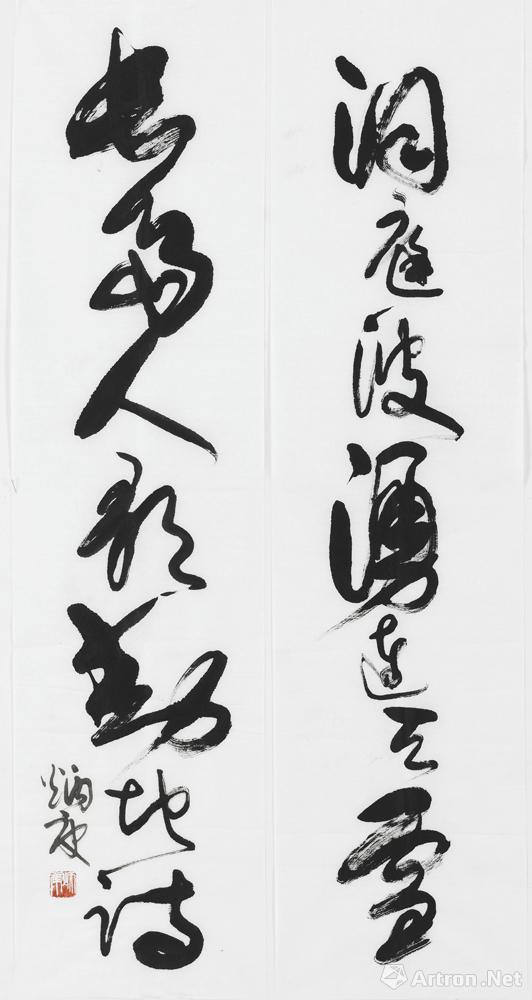 洞庭波涌连天雪
长岛人歌动地诗
炳庚
Artron.Net